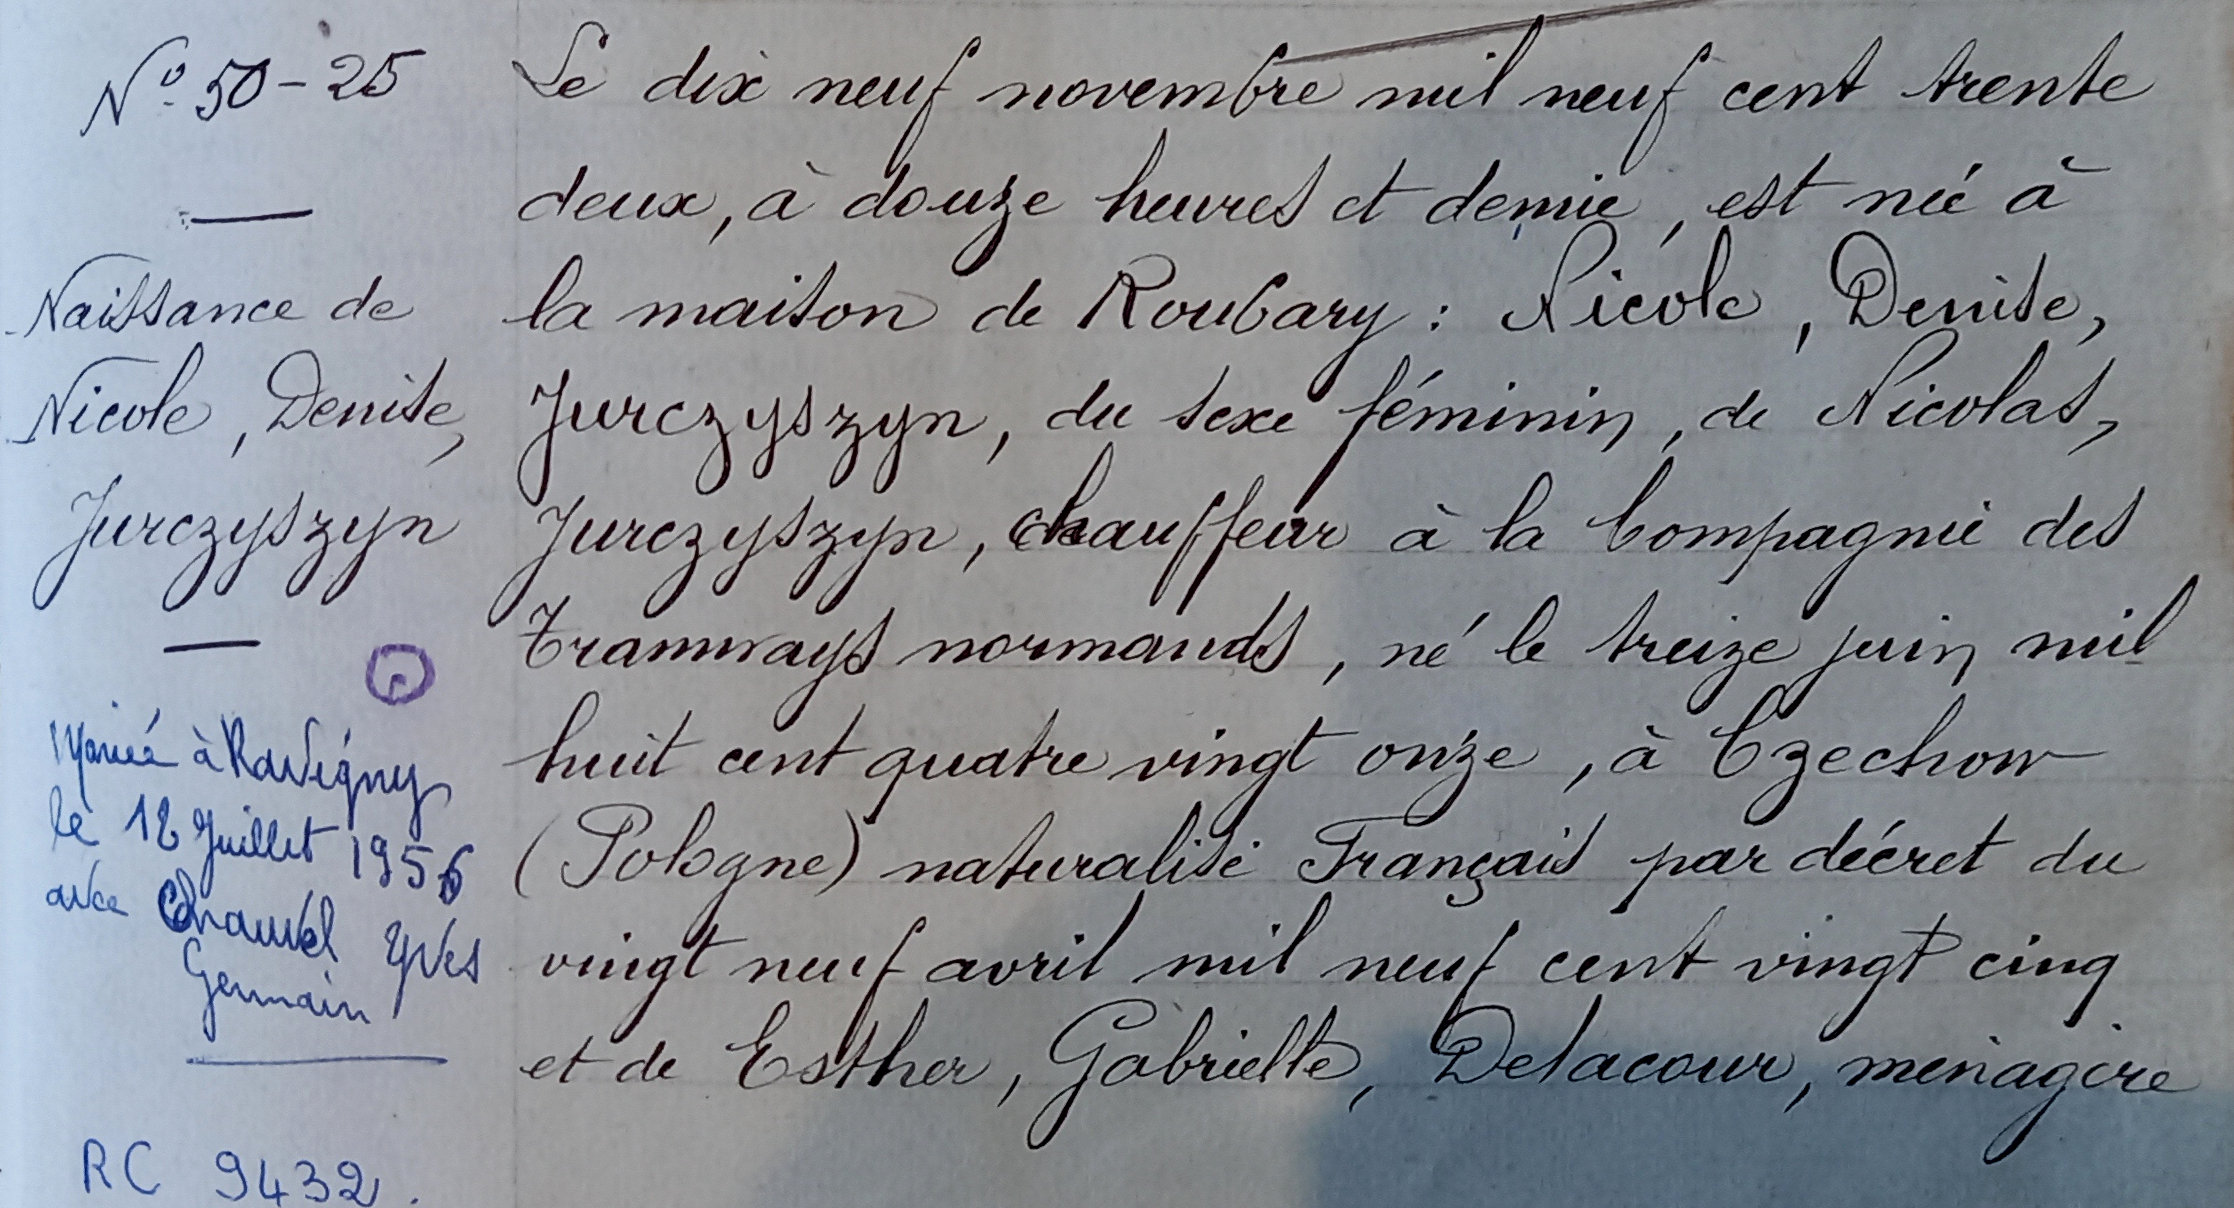 N° 50-25
Naissance de
Nicole, Denise,
Jurczyszyn
Mariée à Ravigny
le 12 Juillet 1956
avec Chauvel Yves
Germain
RC 9432.
Le dix neuf novembre mil neuf cent trente
deux, à douze heures et demie, est née à
la maison de Roubary : Nicole, Denise,
Jurczyszyn, du sexe féminin, de Nicolas,
Jurczyszyn, chauffeur à la Compagnie des
Tramways normands, né le treize juin mil
huit cent quatre vingt onze, à Czechow
(Pologne) naturalisé Français par décret du
vingt neuf avril mil neuf cent vingt cinq
et de Esther, Gabrielle, Delacour, ménagère